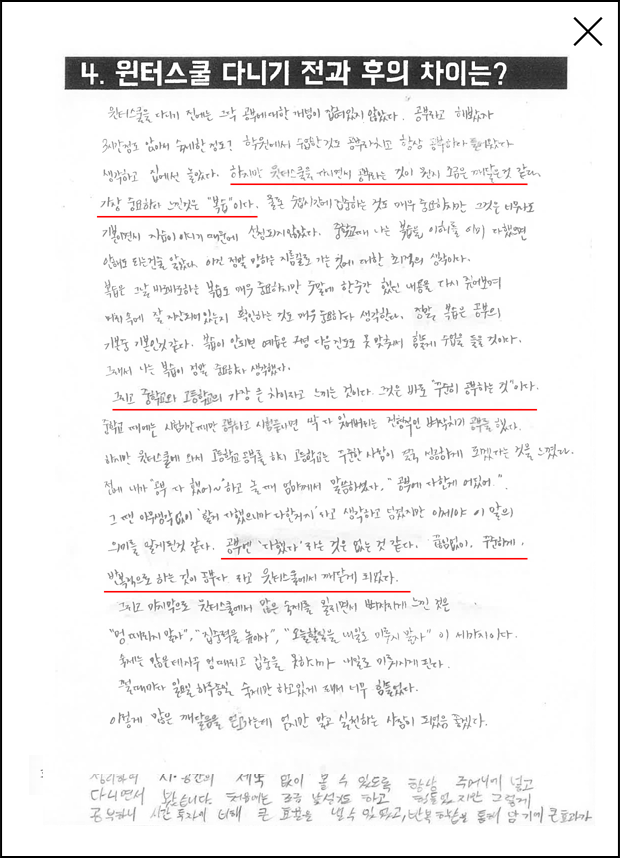 4. 윈터스쿨 다니기 전과 후의 차이는?
윈터스쿨을 다니기 전에는 그냥 공부에 대한 개념이 잡혀있지 않았다. 공부라고 해봤자
3시간정도 앉아서 숙제한 정도? 학원에서 수업한것도 공부라치고 항상 공부하다 들어왔다
생각하고 집에선 놀았다. 하지만 윈터스쿨을 다니면서 공부라는 것이 뭔지 조금은 깨달은것 같다.
가장 중요하다 느낀것은 "복습"이다. 물론 수업시간에 집중하는 것도 매우 중요하지만 그것은 너무나도
기본이면서 지식이 아니기 때문에 선정되지않았다. 중학교때 나는 복습을 이해를 이미 다했으면
안해도 되는건줄 알았다. 이건 정말 망하는 지름길로 가는 것에 대한 최적의 생각이다.
복습은 그날 바로바로하는 복습도 매우 중요하지만 주말에 한주간 했던 내용을 다시 훑어보며
머리속에 잘 자리잡아있는지 확인하는 것도 매우 중요하다 생각한다. 정말, 복습은 공부의
기본중 기본인것 같다. 복습이 안되면 예습은 커녕 다음 진도도 못 맞춰서 힘들게 수업을 들을 것이다.
그래서 나는 복습이 정말 중요하다 생각했다.
그리고 중학교와 고등학교의 가장 큰 차이라고 느끼는 것이다. 그것은 바로 "꾸준히 공부하는 것"이다.
중학교 때에는 시험기간 때만 공부하고 시험끝나면 싹 다 잊어버리는 전형적인 벼락치기 공부를 했다.
하지만 윈터스쿨에 와서 고등학교 공부를 하니 고등학교는 꾸준한 사람이 꼭 성공하게 되겠다는 것을 느꼈다.
전에 내가 "공부 다 했어~"하고 놀 때 엄마께서 말씀하셨다. "공부에 다한게 어딨어".
그 땐 아무생각없이 '할거 다했으니까 다한거지'라고 생각하고 넘겼지만 이제야 이 말의
의미를 알게된것 같다. 공부엔 '다했다'라는 것은 없는 것 같다. 끊임없이, 꾸준하게,
반복적으로 하는 것이 공부다 라고 윈터스쿨에서 깨닫게 되었다.
그리고 마지막으로 윈터스쿨에서 많은 숙제를 밀리면서 뼈저리게 느낀 것은
"멍 때리지 말자", "집중력을 높이자", "오늘할일을 내일로 미루지 말자" 이 세가지이다.
숙제는 많은데 자꾸 멍때리고 집중을 못하니까 내일로 미루게 된다.
그럴때마다 일요일 하루종일 숙제만 하고있게 돼서 너무 힘들었다.
이렇게 많은 깨달음을 얻고가는데 잊지만 말고 실천하는 사람이 되었음 좋겠다.
정리하여 시·공간의 제약 없이 볼 수 있도록 항상 주머니에 넣고
다니면서 봤습니다. 처음에는 조금 낯설기도 하고 힘들었지만 그렇게
공부하니 시간 투자에 비해 큰 효율을 낼 수 있었고, 반복 학습을 통해 암기에 큰효과가